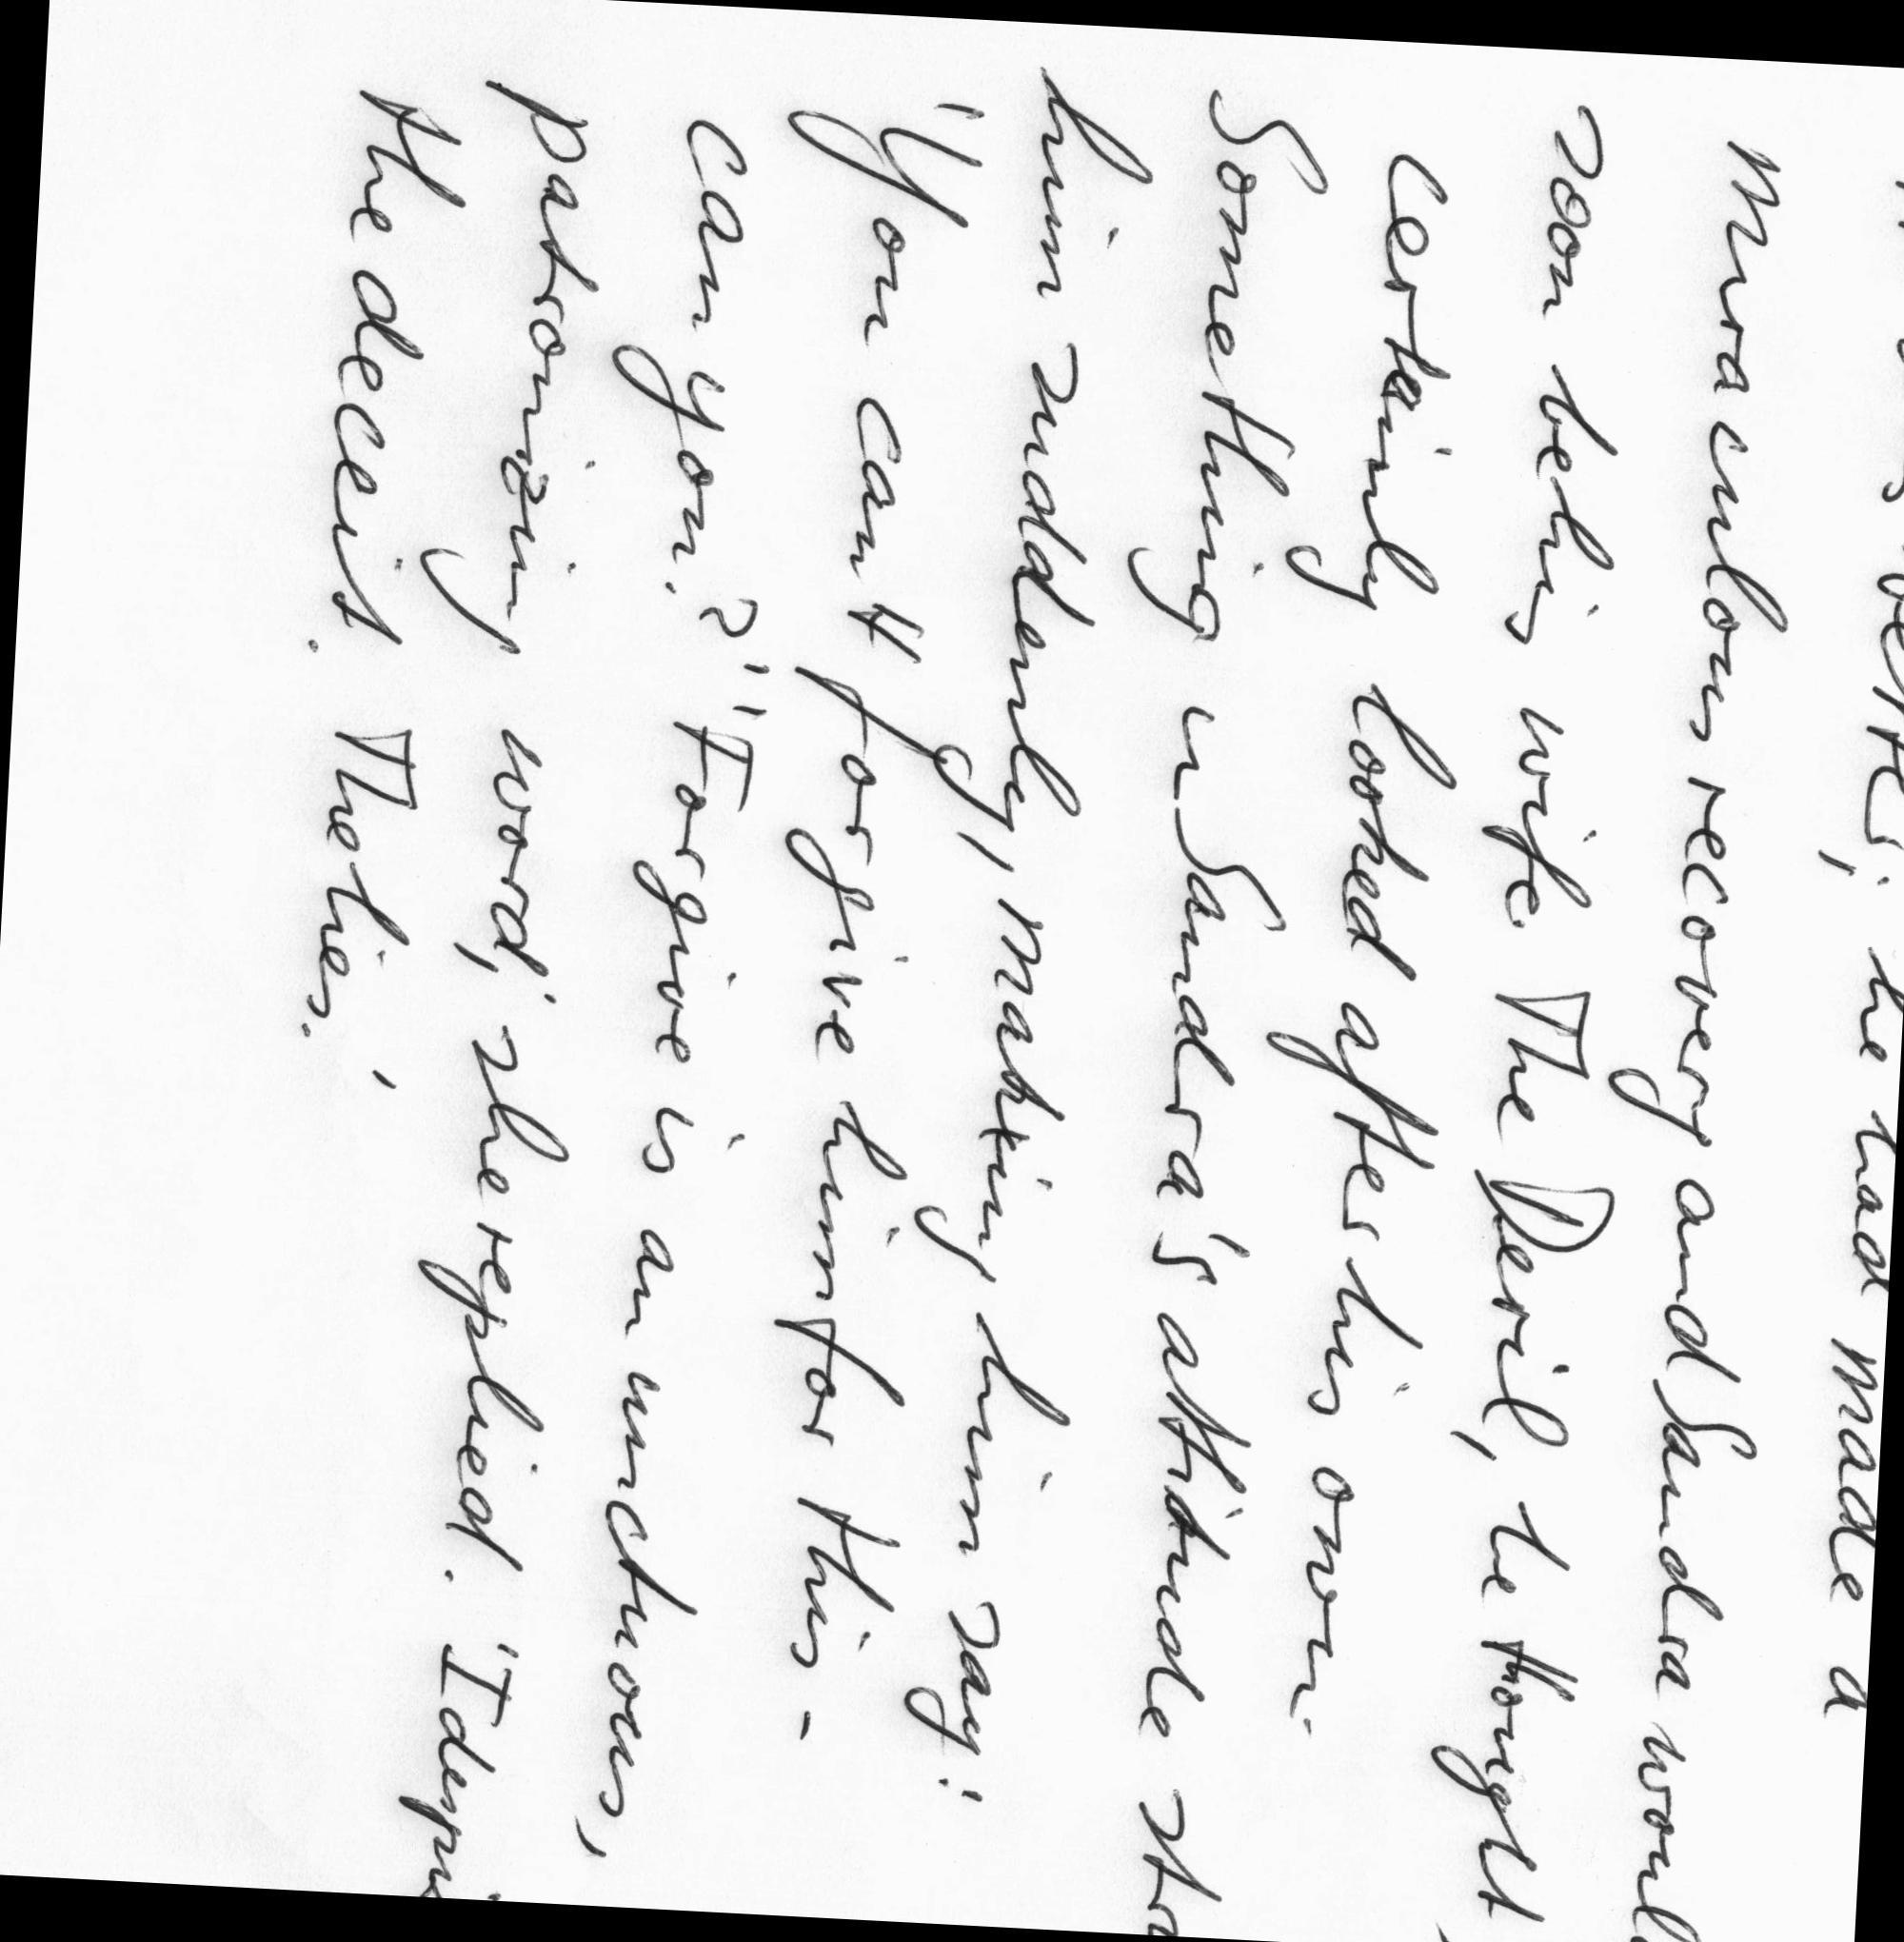 he had made a
Miraculous recovery and Sandra would
soon be his wife. The Devil, he thought
certainly looked after his own.
Something in Sandra's attitude
him suddenly, making him say:
"You can't forgive him for this -
can you?" "Forgive is an unctuous,
patronizing word,' she replied. 'I
the deceit. The lies.'